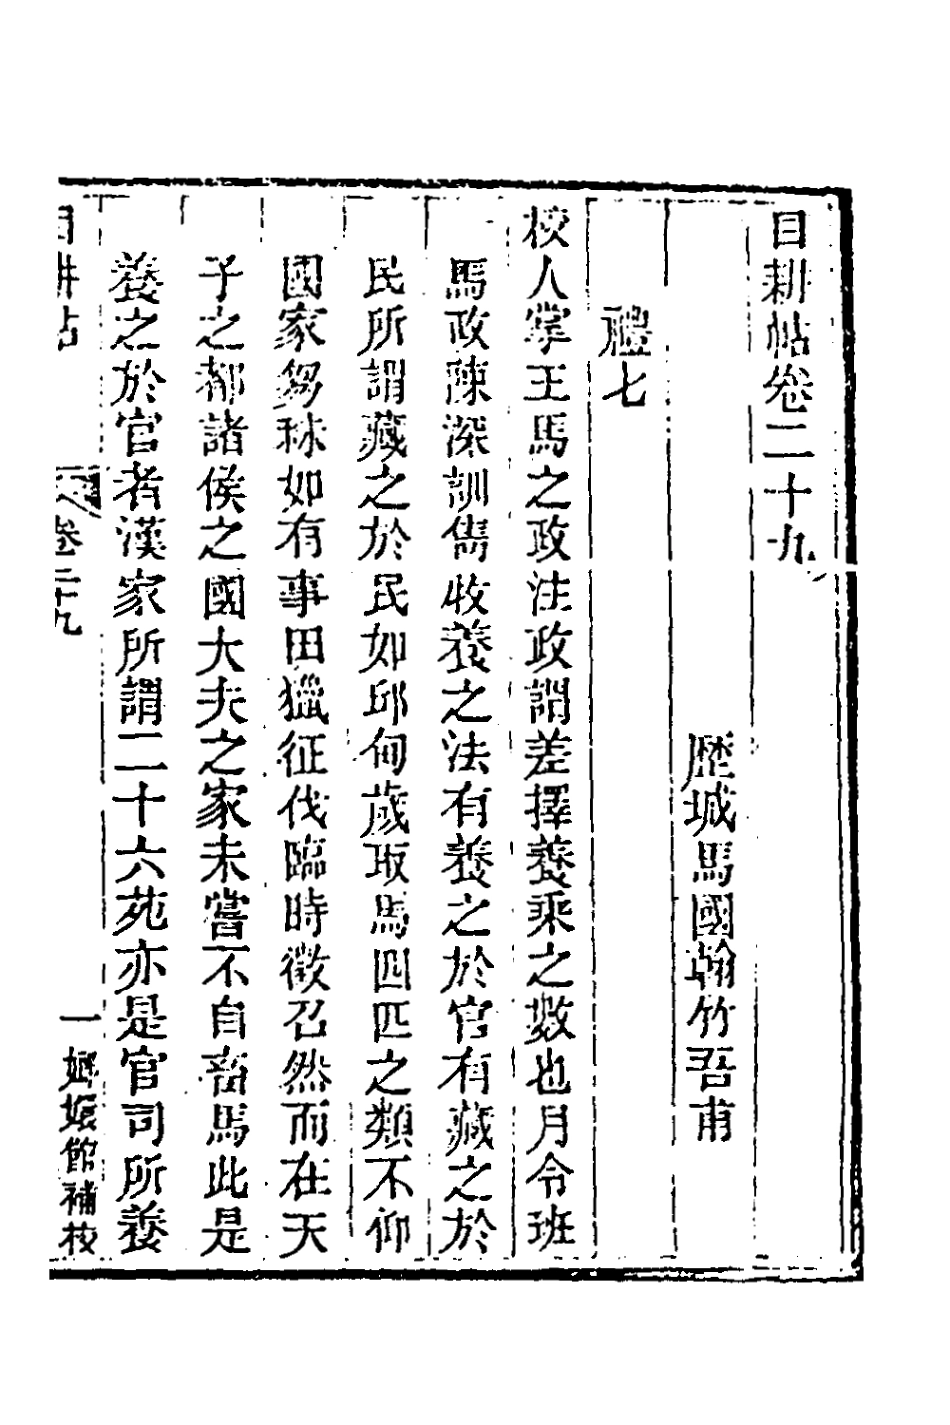 目耕帖卷二十九
歷城馬國翰竹吾甫
禮七
校人掌王馬之政注政謂差擇養乘之數也月令班
馬政陳深訓雋收養之法有養之於官有藏之於
民所謂藏之於民如邱甸歲取馬四匹之類不仰
國家芻秣如有事田獵征伐臨時徵召然而在天
子之都諸侯之國大夫之家未嘗不自畜馬此是
養之於官者漢家所謂二十六苑亦是官司所養
目耕帖 卷二十九 一 嫏嬛館補校